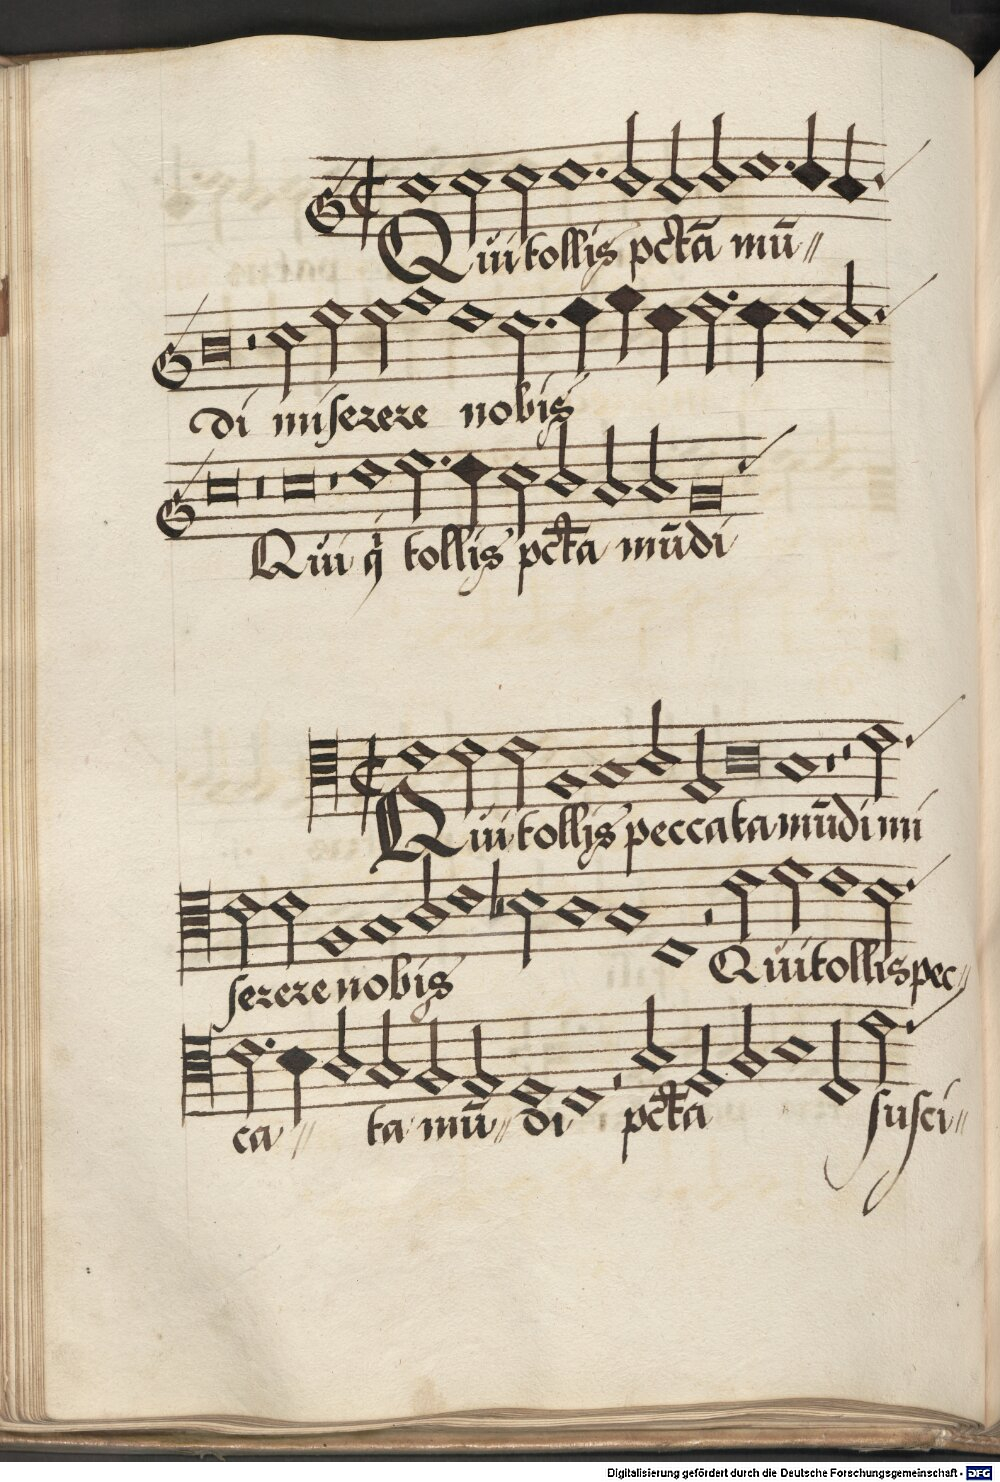 Qui tollis pctā mū〃
di miserere nobis
Qui q̄ tollis pcta mūdi
Qui tollis peccata mūdi mi
serere nobis Qui tollis pec〃
ca〃 ta mū〃 di pcta susci〃
Digitalisierung gefördert durch die Deutsche Forschungsgemeinschaft - DFG